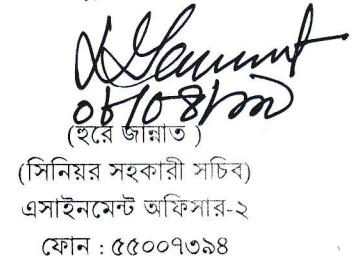 (হুরে জান্নাত )
(সিনিয়র সহকারী সচিব)
এসাইনমেন্ট অফিসার-২
ফোন : ৫৫০০৭৩৯৪